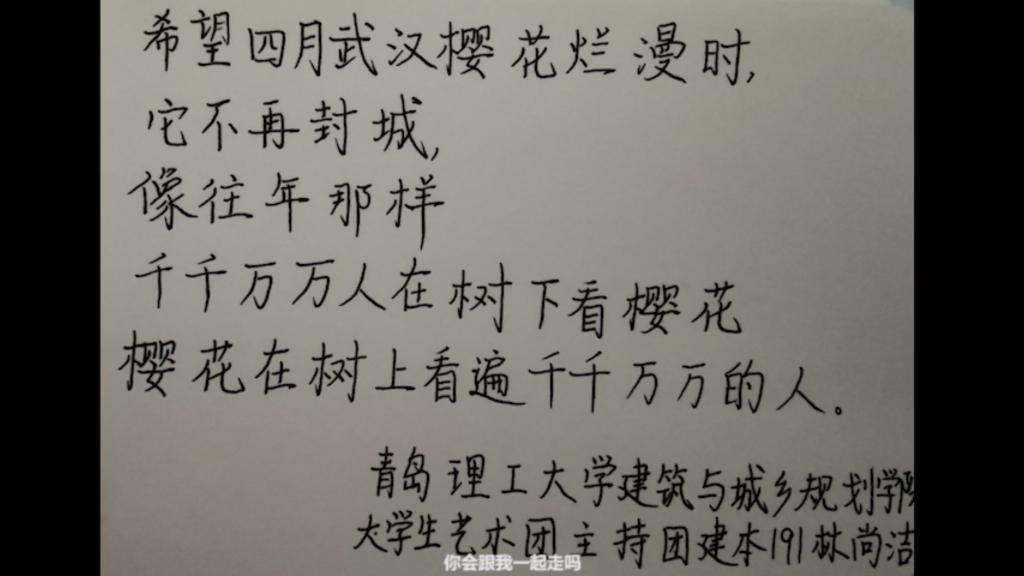 希望四月武汉樱花烂漫时,
它不再封城,
像往年那样
千千万万人在树下看樱花
樱花在树上看遍千千万万的人。
青岛理工大学建筑与城乡规划学院
大学生艺术团主持团建本191林尚洁
你会跟我一起走吗